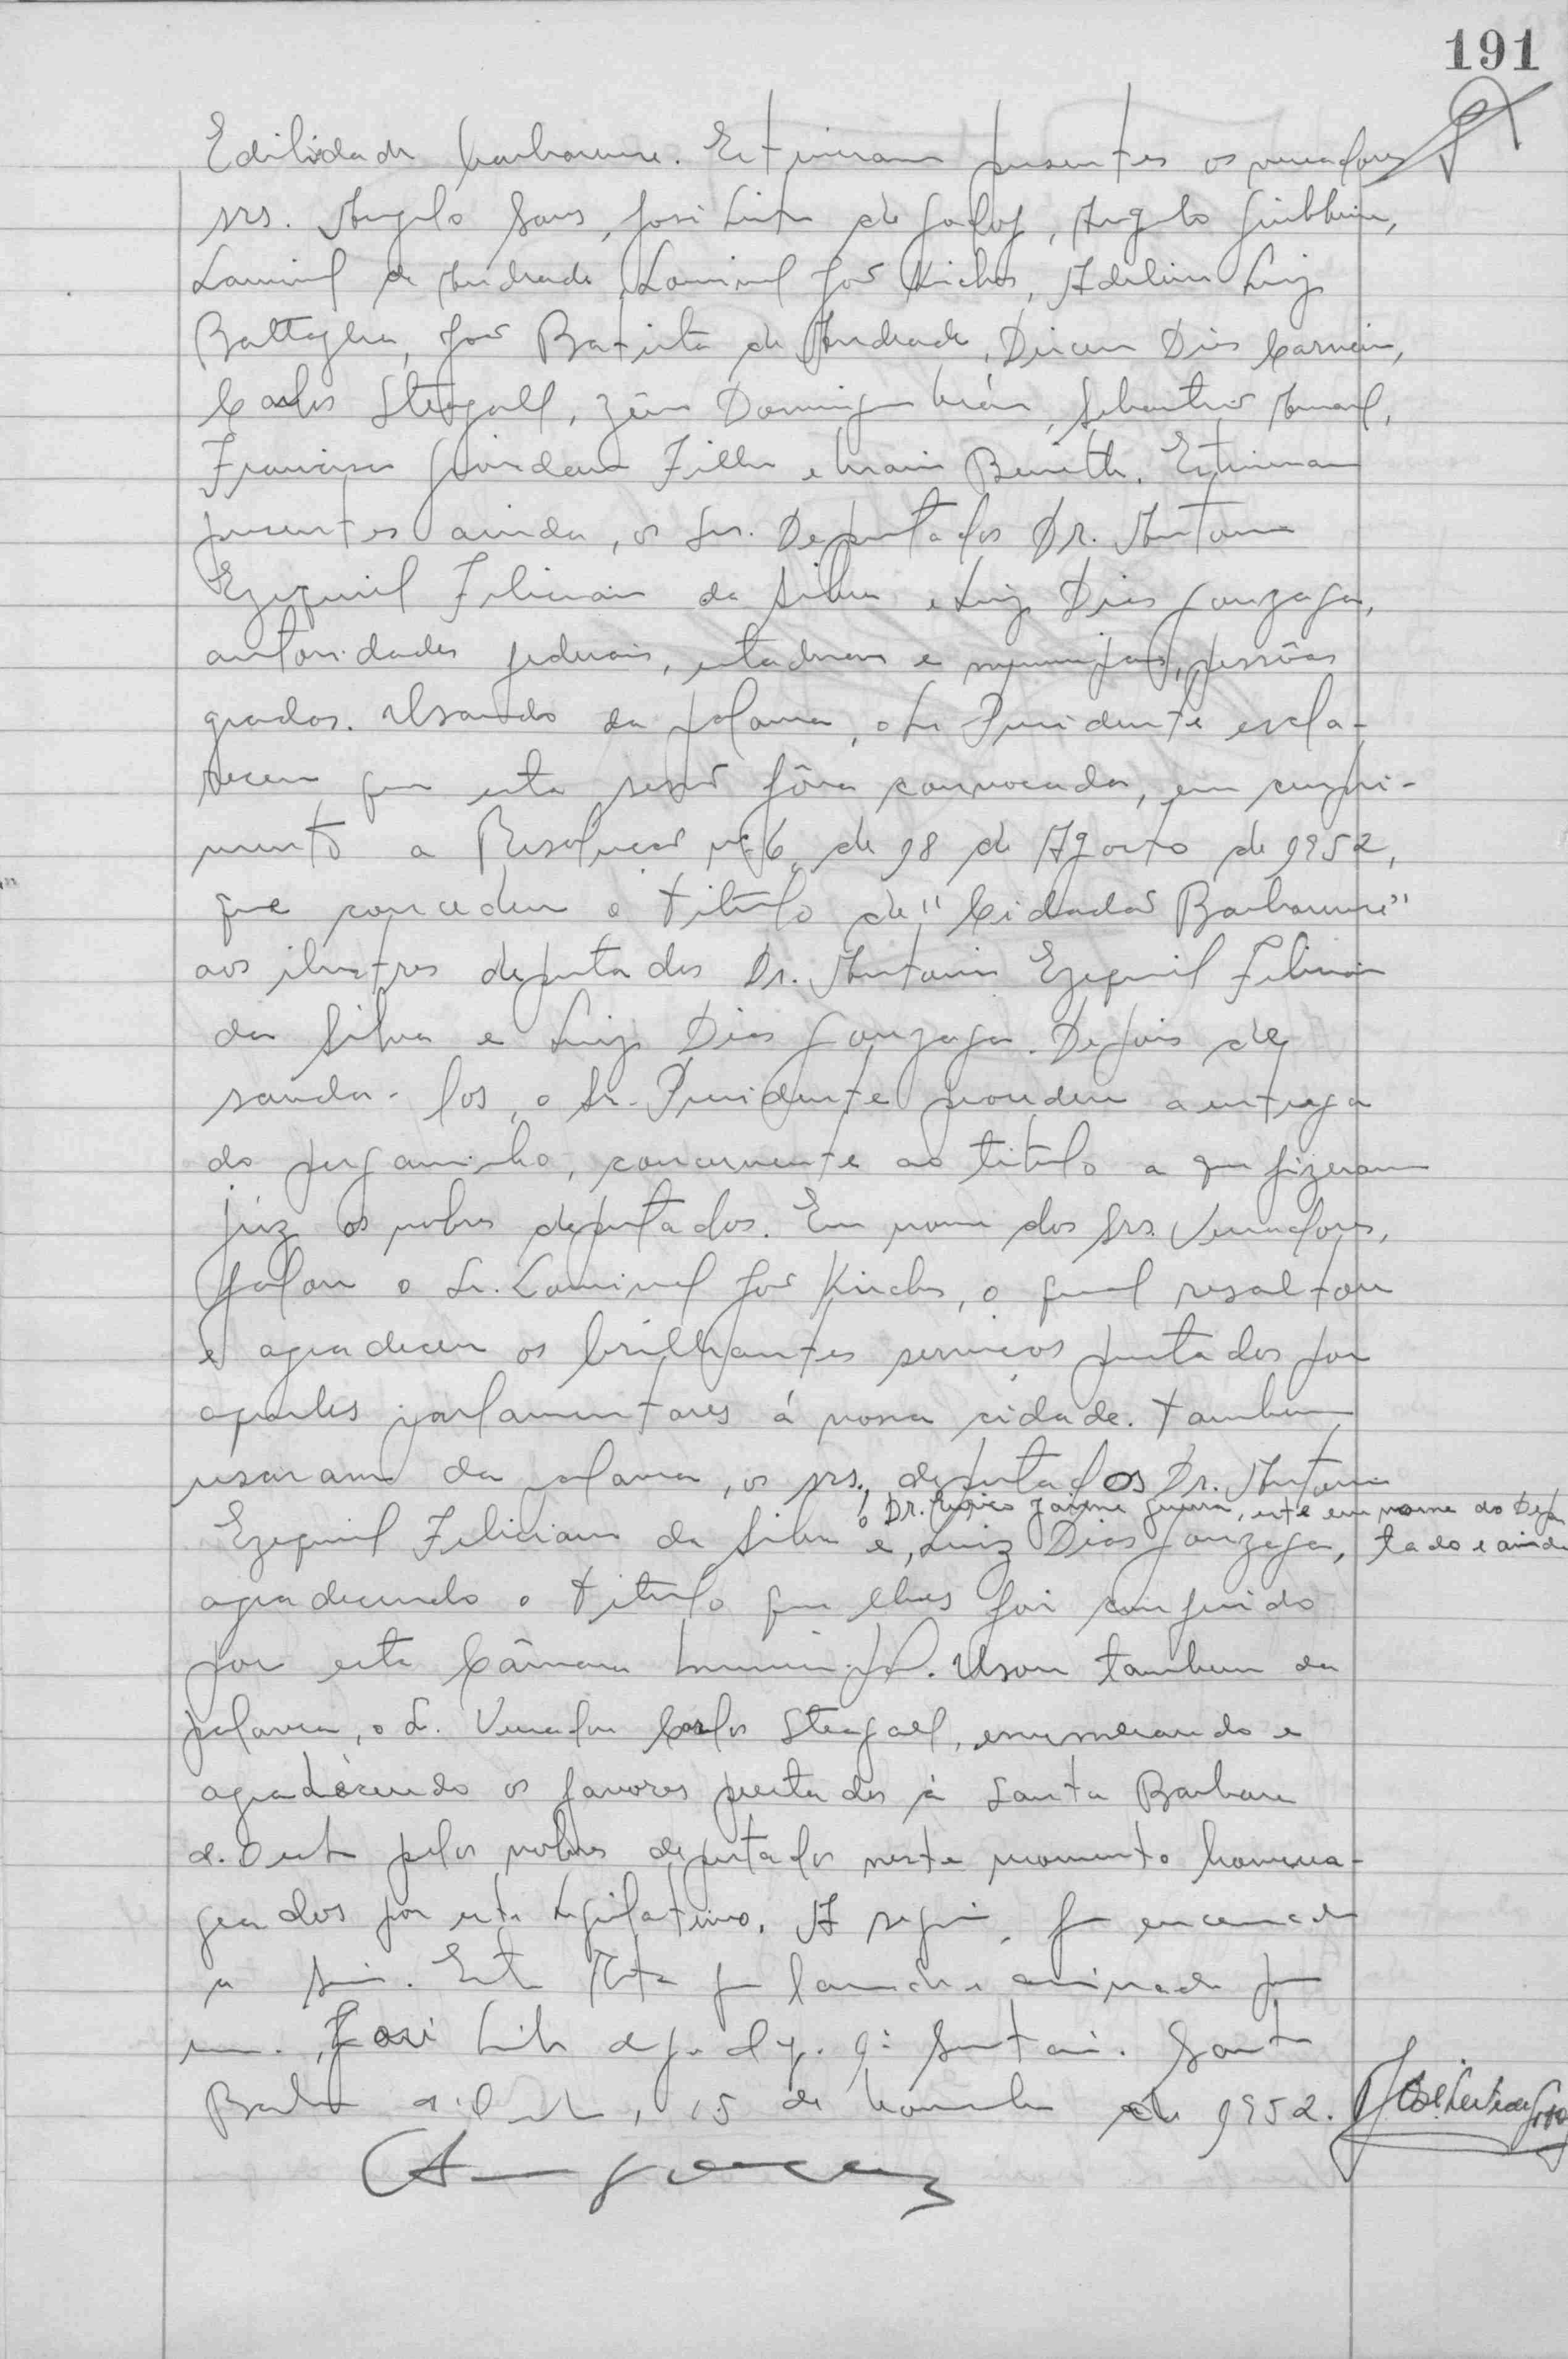 191
Edilidade barbarense. Estiveram presentes os vereadores
srs. Angelo Sans, José Leite de Godoy, Angelo Giubbina,
Lourival de Andrade, Lourival José Kirche, Adelino Luiz
Battaglia, José Batista de Andrade, Dirceu Dias Carneiro,
Carlos Steagall, Zéno Domingos Maia, Sebastião Amaral,
Francisco Giordano Filho e Benetti. Estiveram
presentes ainda, os Srs. Deputados Dr. Antonio
Ezequiel Feliciano da Silva e Luiz Dias Gonzaga,
autoridades federais, estaduais e municipais, pessôas
gradas. Usando da palavra, o Sr. Presidente escla-
receu que esta sessão fôra convocada, em cumpri-
mento a Resolução nº 6, de 18 de Agosto de 1952,
que concedeu o titulo de "Cidadão Barbarense"
aos ilustres deputados Dr. Antonio Ezequiel Feliciano
da Silva e Luiz Dias Gonzaga. Depois de
sauda-los, o Sr. Presidente procedeu a entrega
do pergaminho, concernente ao titulo a que fizeram
júz os nobres deputados. Em nome dos Srs. Vereadores,
falou o Sr. Lourival José Kirche, o qual resaltou
e agradeceu os brilhantes serviços prestados por
aqueles parlamentares á nossa cidade. Tambem
usaram da palavra, os srs. deputados Dr. Antonio
o Dr. Jaime Guerra, este em nome do Depu
Ezequiel Feliciano da Silva e, Luiz Dias Gonzaga, tado e ainda
agradecendo o titulo que lhes foi conferido
por esta Câmara Municipal. Usou tambem da
palavra, o Sr. Vereador Carlos Steagall, enumerando e
agradecendo os favores prestados á Santa Barbara
d'Oeste pelos nobres deputados neste momento homena-
geados por este Legislativo. A seguir, foi encerrada
a sessão. Esta Ata foi lavrada e assinada por
mim. José Leite de Godoy. 1º Secretario. Santa
Barbara d'Oeste, 15 de Novembro de 1952. José Leite de Godoy